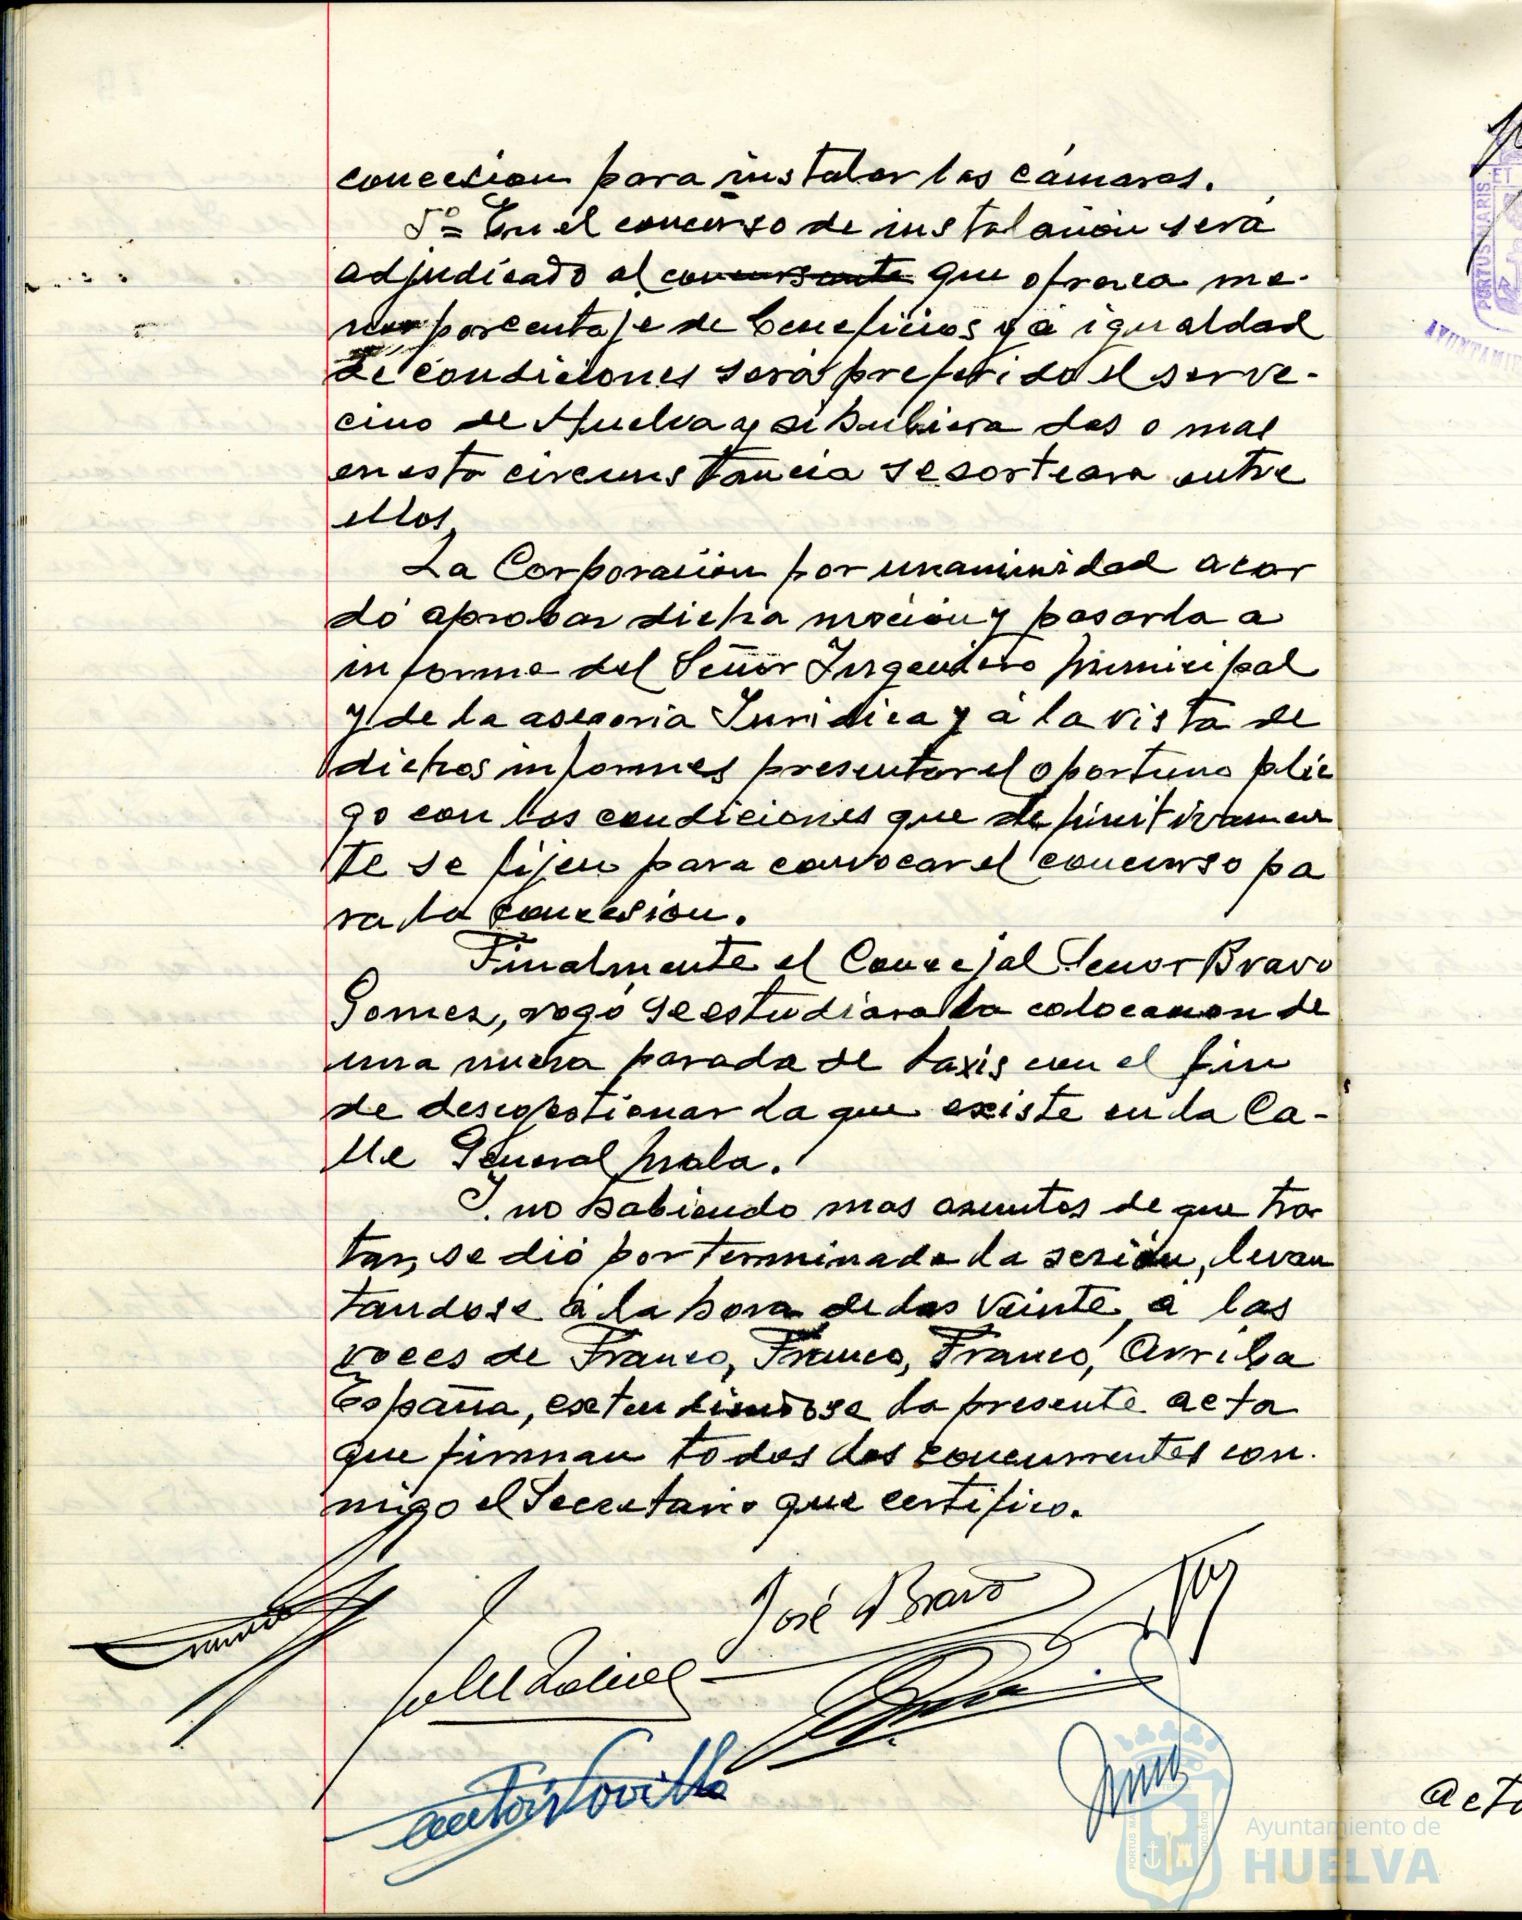 concesion para instalar las cámaras.
5º= En el concurso de instalación será
adjudicado al concursante que ofrezca me-
nor porcentaje de beneficios y a igualdad
de condiciones será preferido el ser ve-
cino de Huelva y si hubiera dos o mas
en esta circunstancia se sorteara entre
ellos.
La Corporación por unanimidad acor
dó aprobar dicha moción y pasarla a
informe del Señor Ingeniero Municipal
y de la asesoria Juridica y á la vista de
dichos informes presentar el oportuno plie
go con las condiciones que definitivamen
te se fijen para convocar el concurso pa
ra la concesion.
Finalmente el Concejal Señor Bravo
Gomez, rogó se estudiara la colocacion de
una nueva parada de taxis con el fin
de descogestionar la que existe en la Ca-
lle General Mola.
Y no habiendo mas asuntos de que tra
tar, se dió por terminada la sesión, levan
tandose á la hora de las veinte, a las
voces de Franco, Franco, Franco, Arriba
España, extendiendose la presente acta
que firman todos los concurrentes con-
migo el Secretario que certifico.
José Bravo
Ayuntamiento de
HUELVA
PORTUS MARIS
ET
AYUNTAMIE
Acta